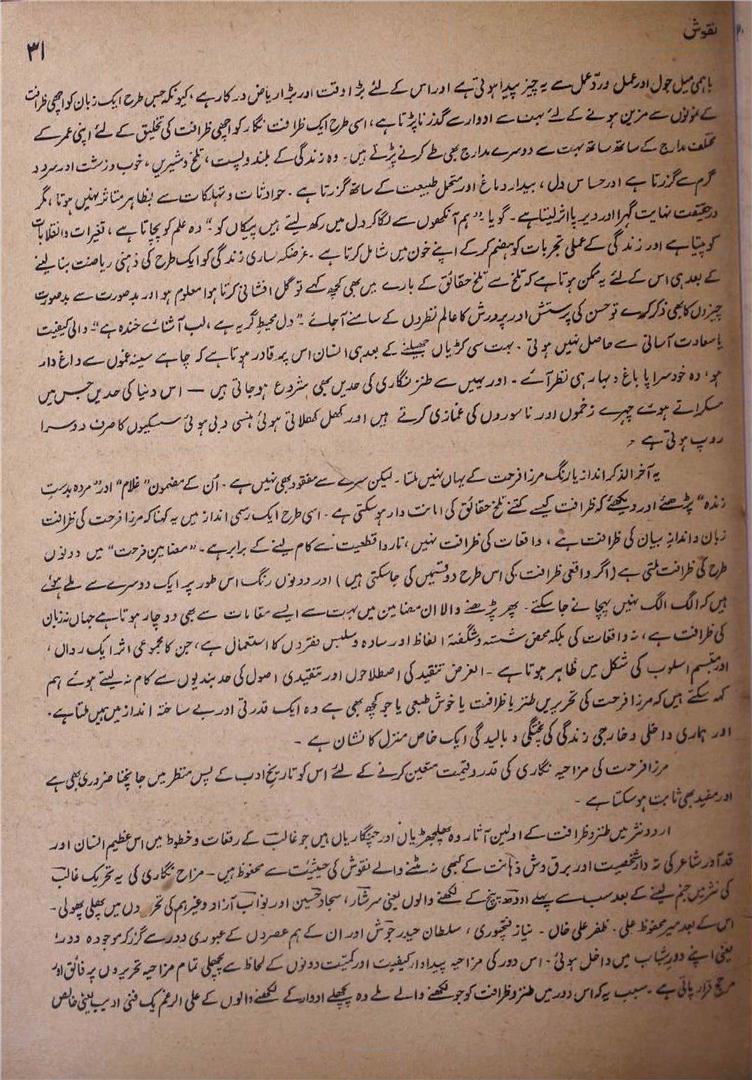 نقوش
۳۱
باہمی میل جول اور عمل و ردّ عمل سے یہ چیز پیدا ہوتی ہے اور اس کے لئے بڑا وقت اور بڑا ریاض درکار ہے، کیونکہ جس طرح ایک زبان کو اچھی ظرافت
کے نمونوں سے مزین ہونے کے لئے بہت سے ادوار سے گذرنا پڑتا ہے، اسی طرح ایک ظرافت نگار کو اچھی ظرافت کی تخلیق کے لئے اپنی عمر کے
مختلف مدارج کے ساتھ ساتھ بہت سے دوسرے مدارج بھی طے کرنے پڑتے ہیں۔ وہ زندگی کے بلند و پست، تلخ و شیریں، خوب و زشت اور سرد و
گرم سے گزرتا ہے اور حساس دل، بیدار دماغ اور متحمل طبیعت کے ساتھ گزرتا ہے۔ حوادثات و تہلکات سے بظاہر متاثر نہیں ہوتا، مگر
درحقیقت نہایت گہرا اور دیرپا اثر لیتا ہے۔ گویا "ہم آنکھوں سے لگا کر دل میں رکھ لیتے ہیں پیکاں کو"۔ وہ علم کو پچاتا ہے، تغیرات و انقلابات
کو پیتا ہے اور زندگی کے عملی تجربات کو ہضم کر کے اپنے خون میں شامل کرتا ہے۔ غرضکہ ساری زندگی کو ایک طرح کی ذہنی ریاضت بنا لینے
کے بعد ہی اس کے لئے یہ ممکن ہوتا ہے کہ تلخ سے تلخ حقائق کے بارے میں بھی کچھ کہے تو گل افشانی کرتا ہوا معلوم ہو اور بدصورت سے بدصورت
چیزوں کا بھی ذکر کرے تو حسن کی پرستش اور پرورش کا عالم نظروں کے سامنے آ جائے۔ "دل محیطِ گریہ ہے، لب آشنائے خندہ ہے"۔ والی کیفیت
یا سعادت آسانی سے حاصل نہیں ہوتی۔ بہت سی کڑیاں جھیلنے کے بعد ہی انسان اس پر قادر ہوتا ہے کہ چاہے سینہ غموں سے داغ دار
ہو، وہ خود سراپا باغ و بہار ہی نظر آئے۔ اور یہیں سے طنز نگاری کی حدیں بھی شروع ہو جاتی ہیں — اس دنیا کی حدیں جس میں
مسکراتے ہوئے چہرے زخموں اور ناسوروں کی غمازی کرتے ہیں اور کھل کھلاتی ہوئی ہنسی دبی ہوئی سسکیوں کا صرف دوسرا
روپ ہوتی ہے۔
یہ آخر الذکر انداز یا رنگ مرزا فرحت کے یہاں نہیں ملتا۔ لیکن سرے سے مفقود بھی نہیں ہے۔ اُن کے مضمون "غلام" اور "مردہ بدستِ
زندہ" پڑھئے اور دیکھئے کہ ظرافت کیسے کتنے تلخ حقائق کی امانت دار ہو سکتی ہے۔ اسی طرح ایک رسمی انداز میں یہ کہنا کہ مرزا فرحت کی ظرافت
زبان و اندازِ بیان کی ظرافت ہے، واقعات کی ظرافت نہیں، ناروا قطعیت سے کام لینے کے برابر ہے۔ "مضامینِ فرحت" میں دونوں
طرح کی ظرافت ملتی ہے (اگر واقعی ظرافت کی اس طرح دو قسمیں کی جا سکتی ہیں) اور دونوں رنگ اس طور پر ایک دوسرے سے ملے ہوئے
ہیں کہ الگ الگ نہیں پہچانے جا سکتے۔ پھر پڑھنے والا ان مضامین میں بہت سے ایسے مقامات سے بھی دوچار ہوتا ہے جہاں نہ زبان
کی ظرافت ہے، نہ واقعات کی بلکہ محض شستہ و شگفتہ الفاظ اور سادہ و سلیس فقروں کا استعمال ہے، جن کا مجموعی اثر ایک رواں،
اور متبسم اسلوب کی شکل میں ظاہر ہوتا ہے۔ الغرض تنقید کی اصطلاحوں اور تنقیدی اصول کی حد بندیوں سے کام نہ لیتے ہوئے ہم
کہہ سکتے ہیں کہ مرزا فرحت کی تحریریں طنز یا ظرافت یا خوش طبعی یا جو کچھ بھی ہے وہ ایک قدرتی اور بے ساختہ انداز میں ہمیں ملتا ہے۔
اور ہماری داخلی و خارجی زندگی کی پختگی و بالیدگی ایک خاص منزل کا نشان ہے۔
مرزا فرحت کی مزاحیہ نگاری کی قدر و قیمت متعین کرنے کے لئے اس کو تاریخِ ادب کے پس منظر میں جانچنا ضروری بھی ہے
اور مفید بھی ثابت ہو سکتا ہے۔
اردو نثر میں طنز و ظرافت کے اولین آثار وہ پھلجھڑیاں اور چنگاریاں ہیں جو غالبؔ کے رقعات و خطوط میں اس عظیم انسان اور
قدآور شاعر کی تہ دار شخصیت اور برق وش ذہانت کے کبھی نہ مٹنے والے نقوش کی حیثیت سے محفوظ ہیں۔ مزاح نگاری کی یہ تحریک غالبؔ
کی نثر میں جنم لینے کے بعد سب سے پہلے اودھ پنچ کے لکھنے والوں یعنی سرشار، سجاد حسین اور نواب آزاد وغیرہم کی تحریروں میں پھلی پھولی۔
اس کے بعد میر محفوظ علی۔ ظفر علی خاں۔ نیاز فتحپوری، سلطان حیدر جوش اور ان کے ہم عصروں کے عبوری دور سے گزر کر موجودہ دور،
یعنی اپنے دورِ شباب میں داخل ہوئی۔ اس دور کی مزاحیہ پیداوار کیفیت اور کمیت دونوں کے لحاظ سے پچھلی تمام مزاحیہ تحریروں پر فائق اور
مرجح قرار پاتی ہے۔ سبب یہ کہ اس دور میں طنز و ظرافت کو جو لکھنے والے ملے وہ پچھلے ادوار کے لکھنے والوں کے علی الرغم یک فنی ادیب یعنی خالص